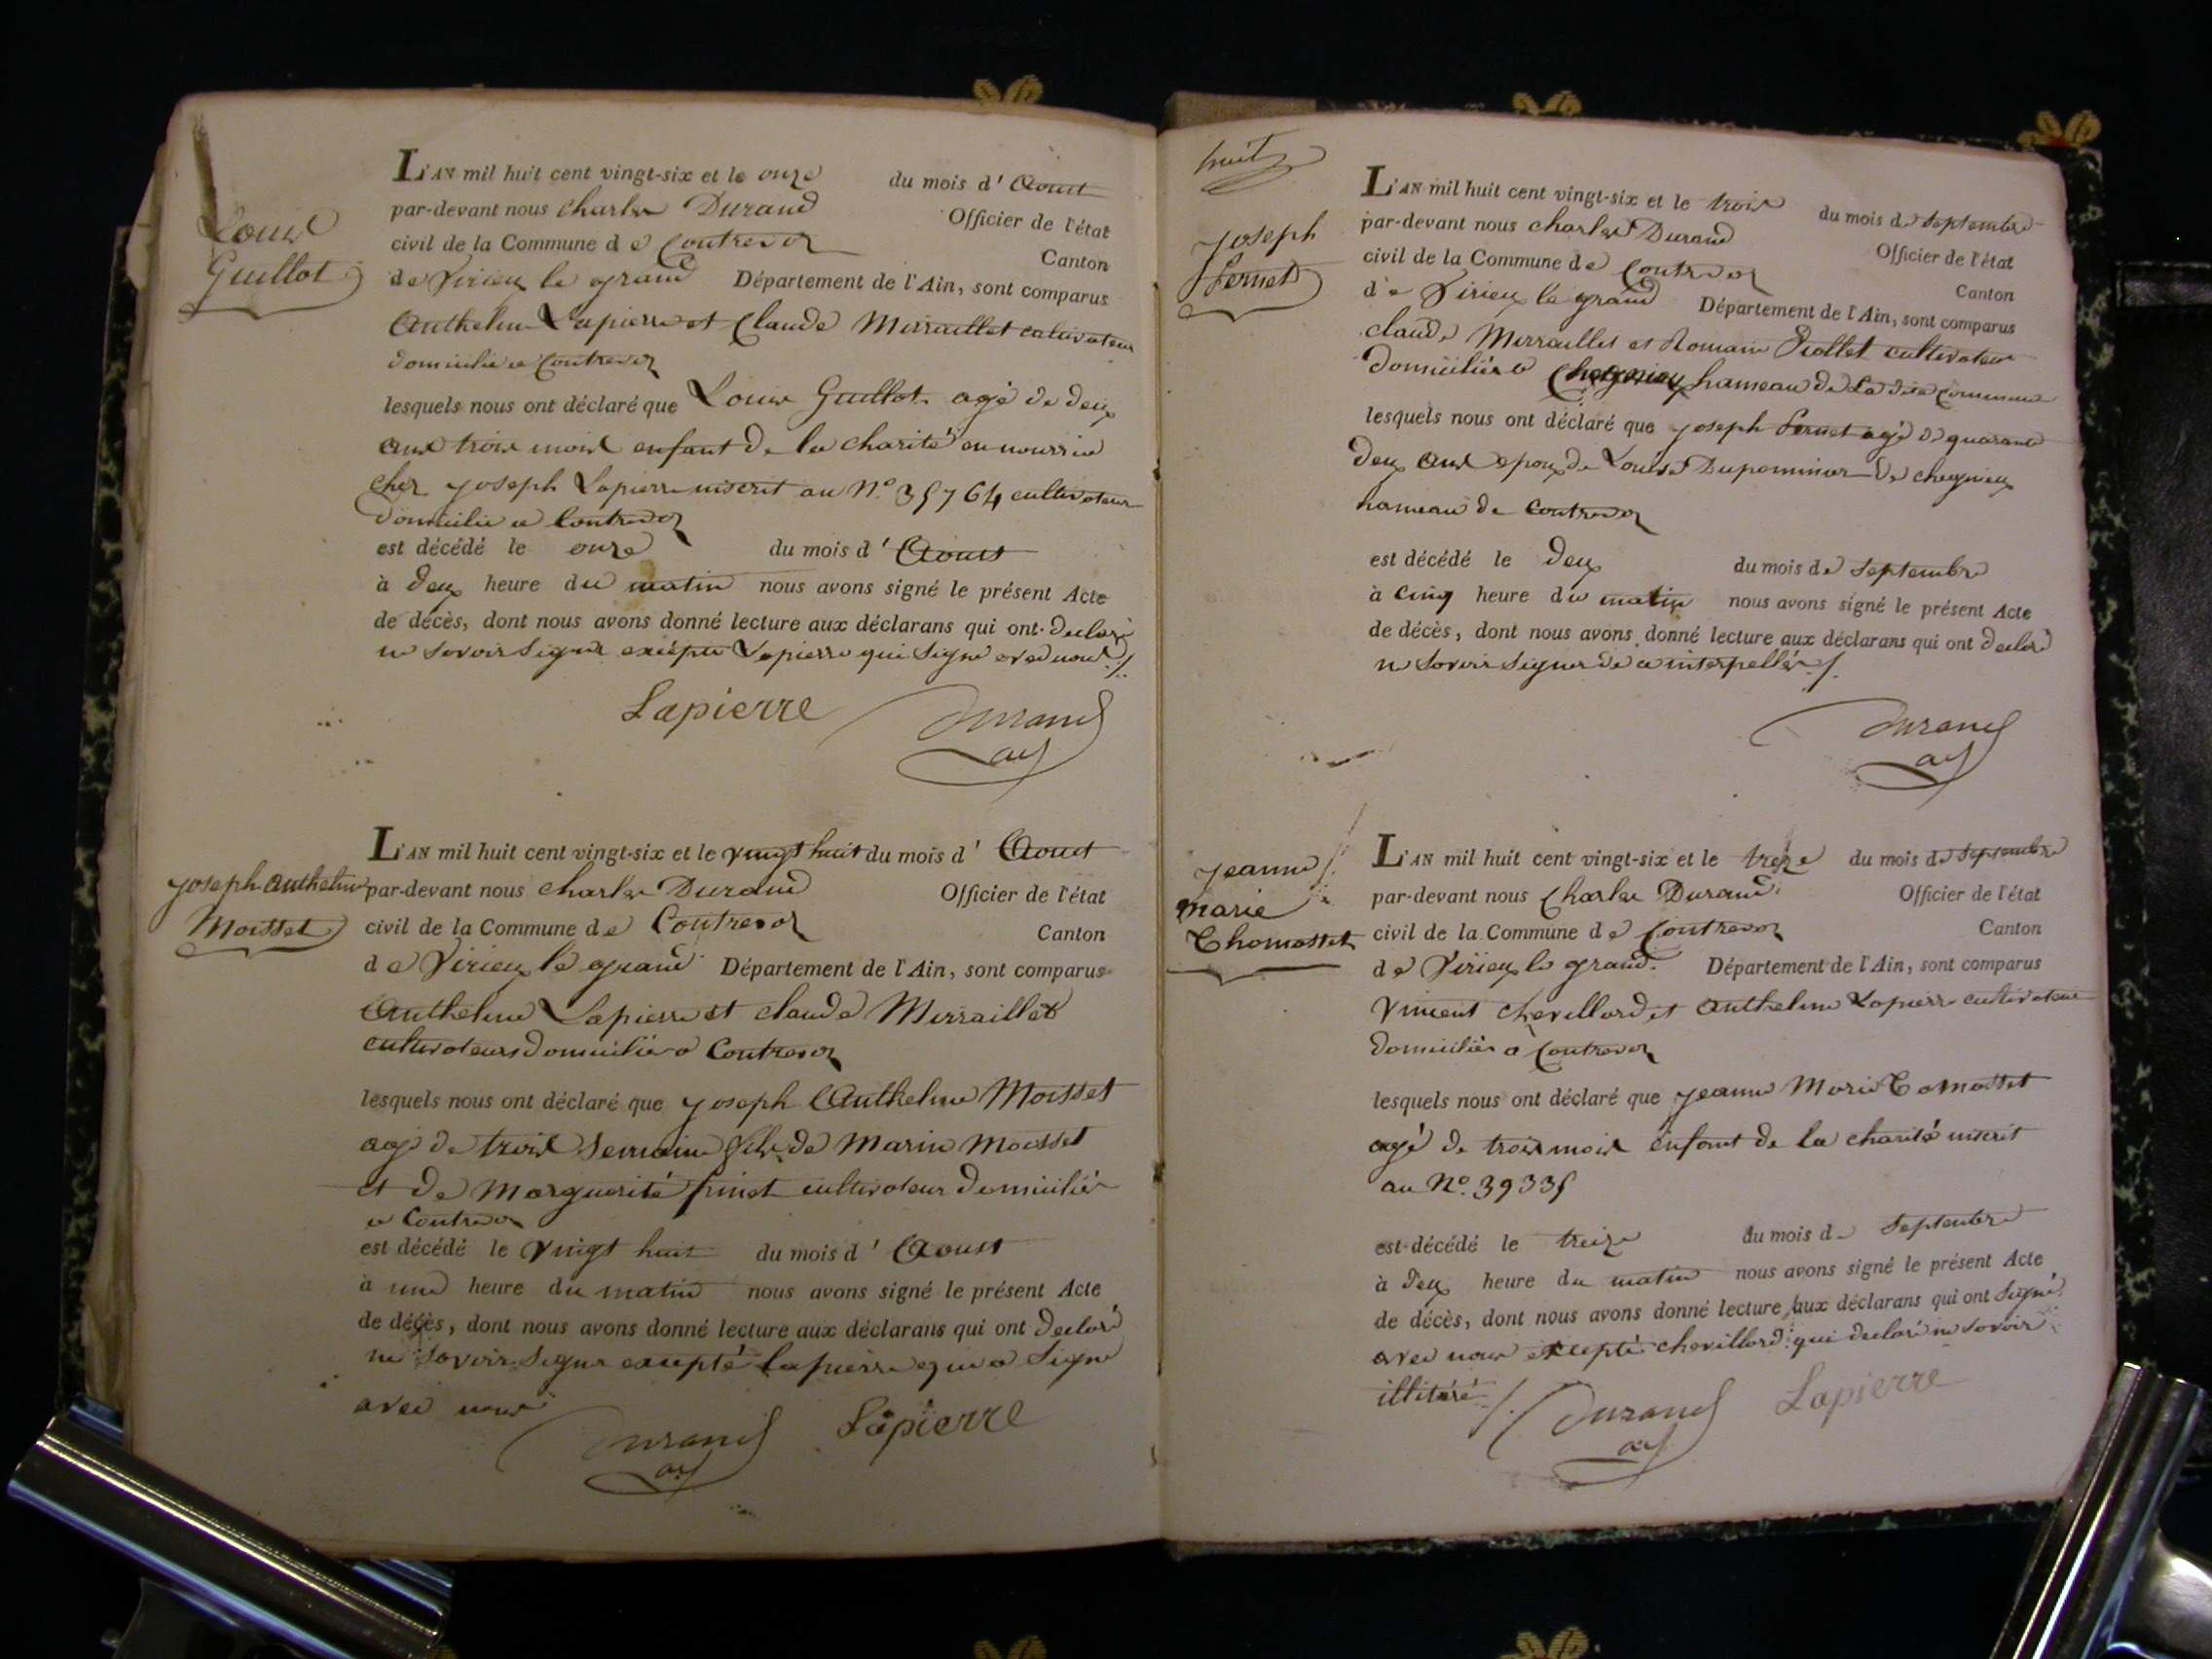 Louis
Guillot
L'AN mil huit cent vingt-six et le onze du mois d'Aoust
par-devant nous Charles Durand Officier de l'état
civil de la Commune de Contrevoz Canton
de Virieu le grand Département de l'Ain, sont comparus
Anthelme Lapierre et Claude Mirraillet cultivateur
domicilié a Contrevoz
lesquels nous ont déclaré que Louis Guillot agé de deux
ans trois mois enfant de la charité en nourrice
chez joseph Lapierre inscrit au N.° 35764 cultivateur
domicilié a Contrevoz
est décédé le onze du mois d'Aoust
à deux heure du matin nous avons signé le présent Acte
de décès, dont nous avons donné lecture aux déclarans qui ont déclaré
ne savoir signer excepté Lapierre qui signe avec nous ./.
Lapierre Durand
joseph Anthelme
Moisset
L'AN mil huit cent vingt-six et le vingt huit du mois d'Aoust
par-devant nous charles Durand Officier de l'état
civil de la Commune de Contrevoz Canton
de Virieu le grand Département de l'Ain, sont comparus
Anthelme Lapierre et claude Mirraillet
cultivateurs domicilié a Contrevoz
lesquels nous ont déclaré que joseph Anthelme Moisset
agé de trois semaine fils de Marin Moisset
et de Marguerite pinet cultivateur domiciliés
a Contrevoz
est décédé le vingt huit du mois d'Aoust
à une heure du matin nous avons signé le présent Acte
de décès, dont nous avons donné lecture aux déclarans qui ont declaré
ne savoir signer excepté lapierre qui a signe
avec nous
Durand Lapierre
huit
joseph
Sernet
L'AN mil huit cent vingt-six et le trois du mois de septembre
par-devant nous charles Durand Officier de l'état
civil de la Commune de Contrevoz Canton
de Virieu le grand Département de l'Ain, sont comparus
claude Mirraillet et Romain Diollet cultivateur
domiciliés a Chegnieu hameau de La dite Commune
lesquels nous ont déclaré que joseph Sernet agé de quarante
deux ans epoux de Louise Dupominier de chegnieu
hameau de Contrevoz
est décédé le deux du mois de septembre
à cinq heure du matin nous avons signé le présent Acte
de décès, dont nous avons donné lecture aux déclarans qui ont declaré
ne savoir signer de ce interpellés ./.
Durand
jeanne
marie
Thomasset
L'AN mil huit cent vingt-six et le treize du mois de septembre
par-devant nous Charles Durand Officier de l'état
civil de la Commune de Contrevoz Canton
de Virieu le grand Département de l'Ain, sont comparus
Vincent chevillard et Anthelme Lapierre cultivateur
domiciliés à Contrevoz
lesquels nous ont déclaré que jeanne Marie Tomasset
agé de trois mois enfant de la charité inscrit
au N.° 39335
est décédé le treize du mois de septembre
à deux heure du matin nous avons signé le présent Acte
de décès, dont nous avons donné lecture aux déclarans qui ont signé
avec nous excepté chevillard qui declaré ne savoir
illitéré ./.
Durand Lapierre